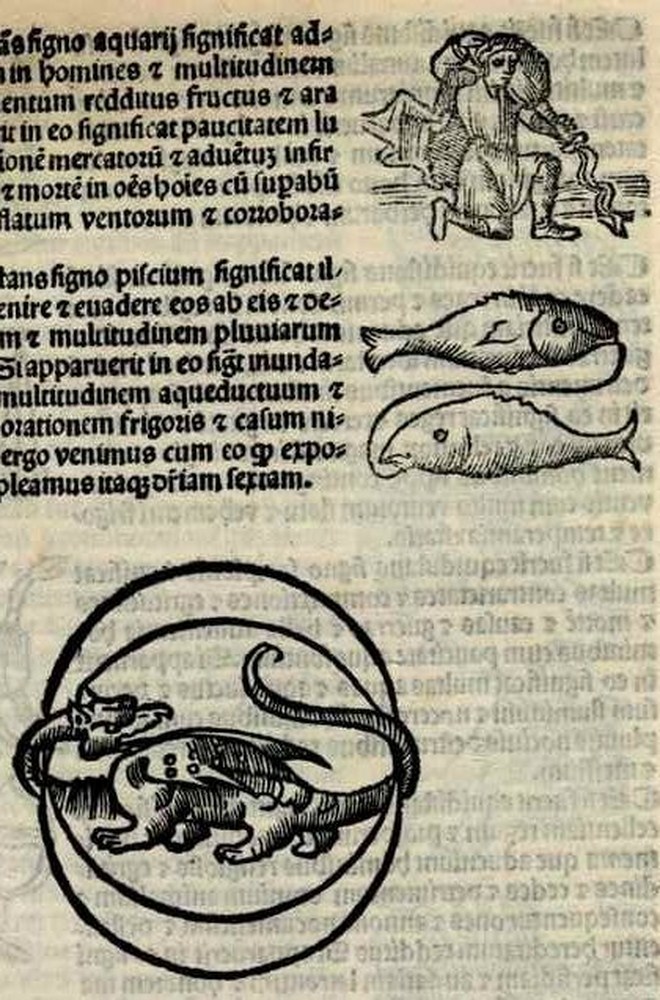 ās signo aquarij significat ad⸗
in homines ⁊ multitudinem
entum redditus fructus ⁊ ara
it in eo significat paucitatem lu
ionē mercatorū ⁊ aduētuꝫ infir
⁊ mortē in oēs hoies cū supabū
flatum ventorum ⁊ corrobora⸗
tans signo piscium significat il⸗
enire ⁊ euadere eos ab eis ⁊ de⸗
m ⁊ multitudinem pluuiarum
Si apparuerit in eo sigt inunda⸗
multitudinem aqueductuum ⁊
orationem frigoris ⁊ casum ni⸗
ergo venimus cum eo ꝙ expo⸗
pleamus itaqꝫ driam sextam.